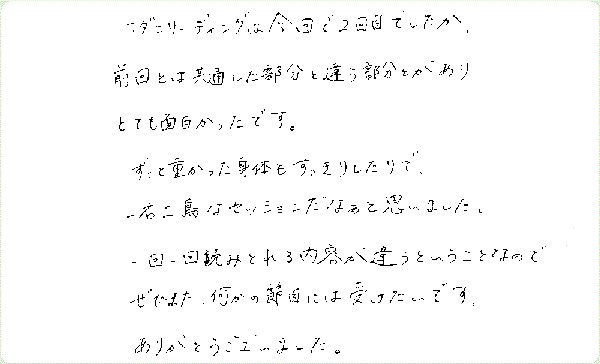 リーディングは今回で2回目でしたが、
前回とは共通した部分と違う部分とがあり
とても面白かったです。
ずっと重かった身体もすっきりしたりで、
一石二鳥なセッションだなぁと思いました。
一回一回読みとれる内容が違うということなので
ぜひまた、何かの節目には受けたいです。
ありがとうございました。